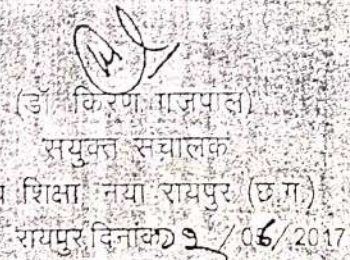 (डॉ किरण गजपाल)
सयुक्त संचालक
शिक्षा नया रायपुर (छ.ग.)
रायपुर, दिनांक 02/06/2017